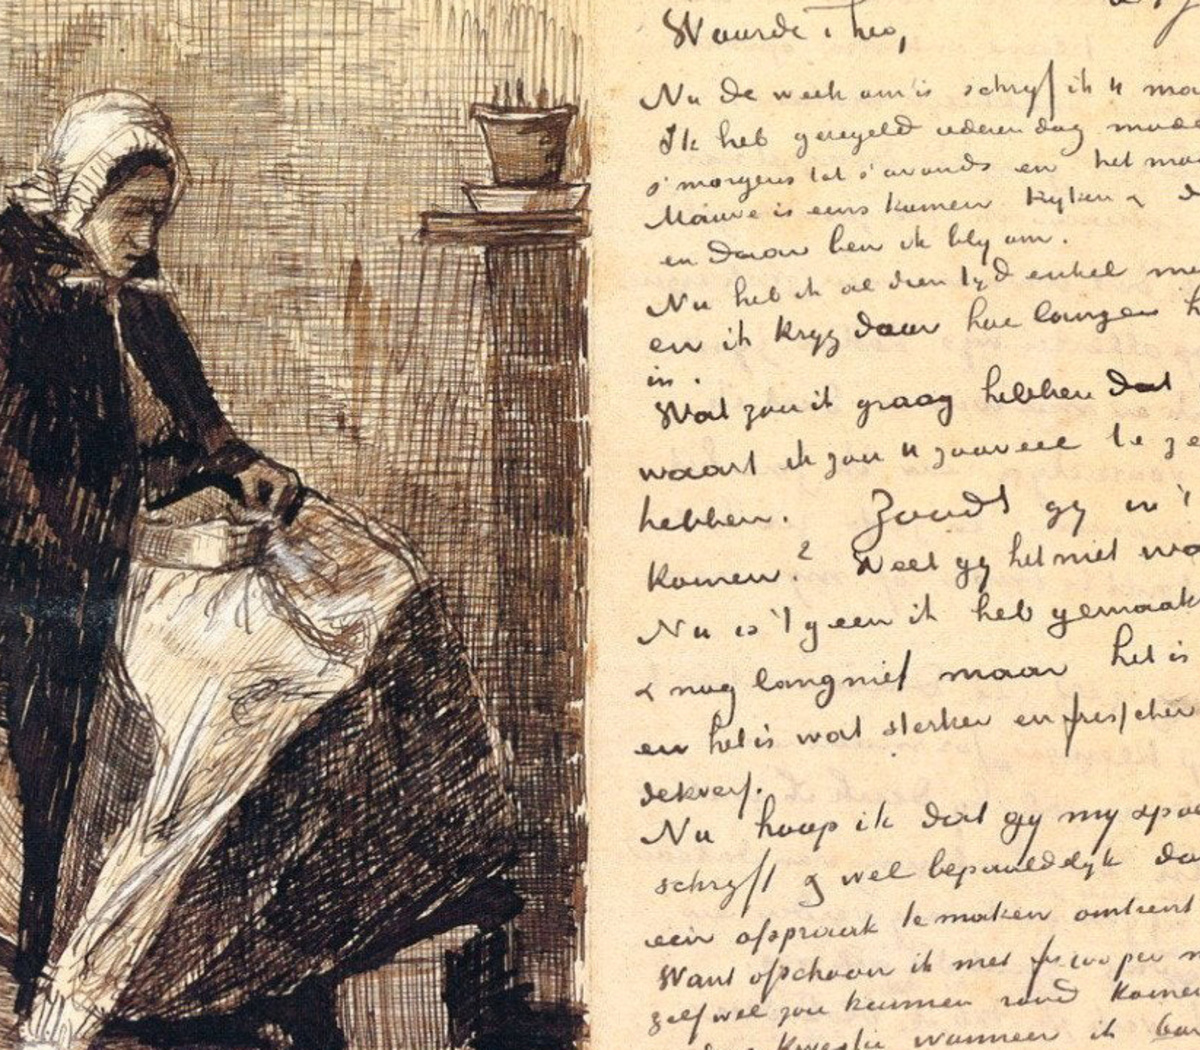 Waarde Theo,
Nu de week om is schryf ik U
Ik heb geregeld iederen dag
s'morgens tot s'avonds en het
Mauve is eens komen kyken &
en daar ben ik bly om.
Nu heb ik al dien tyd enkel
en ik kryg daar hoe langer
in.
Wat zou ik graag hebben dat
want ik zou U zooveel te
hebben. Zoudt gy in't
komen? Weet gy het niet
Nu is 'tgeen ik heb gemaakt
& nog lang niet maar het is
en het is wat sterker en frisscher
dekverf.
Nu hoop ik dat gy my
schryft & wel bepaaldelyk
een afspraak te maken omtrent
Want ofschoon ik met per
zelf wel zou kunnen rond komen
kwestie wanneer ik